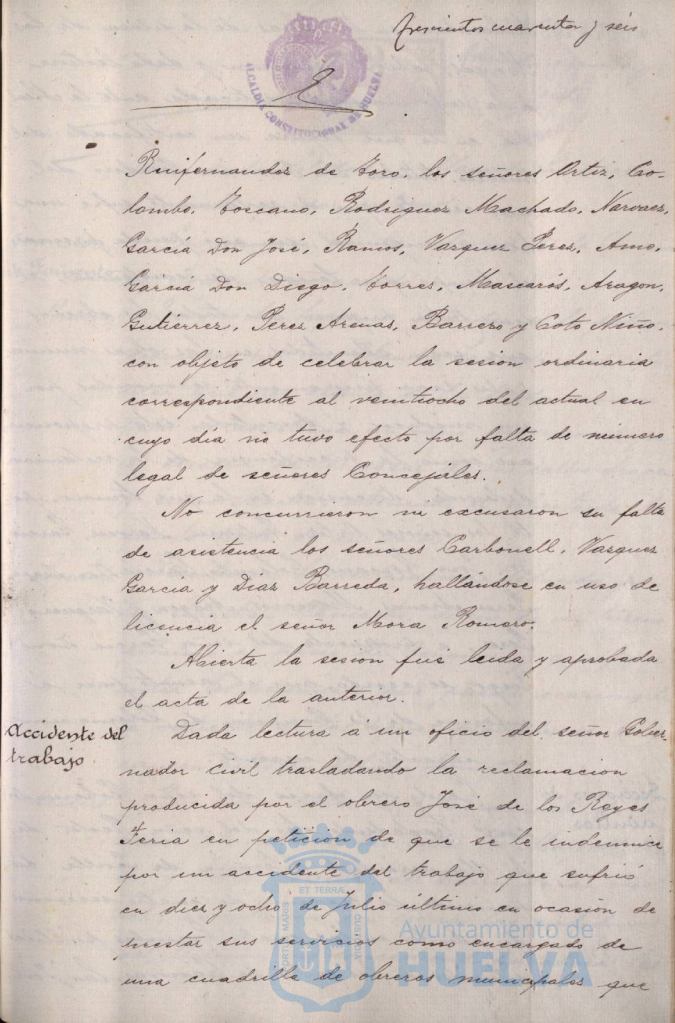 trescientos cuarenta y seis
ALCALDIA CONSTITUCIONAL DE HUELVA
Ruifernandez de Toro, los señores Ortiz, Co-
lombo, Toscano, Rodriguez Machado, Narvaez,
García Don José, Ramos, Vazquez Perez, Amo,
García Don Diego, Torres, Mascarós, Aragon,
Gutierrez, Perez Arenas, Barrero y Coto Niño,
con objeto de celebrar la sesion ordinaria
correspondiente al veintiocho del actual en
cuyo día no tuvo efecto por falta de número
legal de señores Concejales.
No concurrieron ni excusaron su falta
de asistencia los señores Carbonell, Vazquez
García y Diaz Barreda, hallándose en uso de
licencia el señor Mora Romero.
Abierta la sesion fué leida y aprobada
el acta de la anterior.
Accidente del
trabajo.
Dada lectura á un oficio del señor Gober-
nador civil trasladando la reclamacion
producida por el obrero José de los Reyes
Feria en peticion de que se le indemnice
por un accidente del trabajo que sufrió
en diez y ocho de Julio último en ocasión de
prestar sus servicios como encargado de
una cuadrilla de obreros municipales que
PORTUS MARIS ET TERRÆ CUSTODIA
Ayuntamiento de
HUELVA